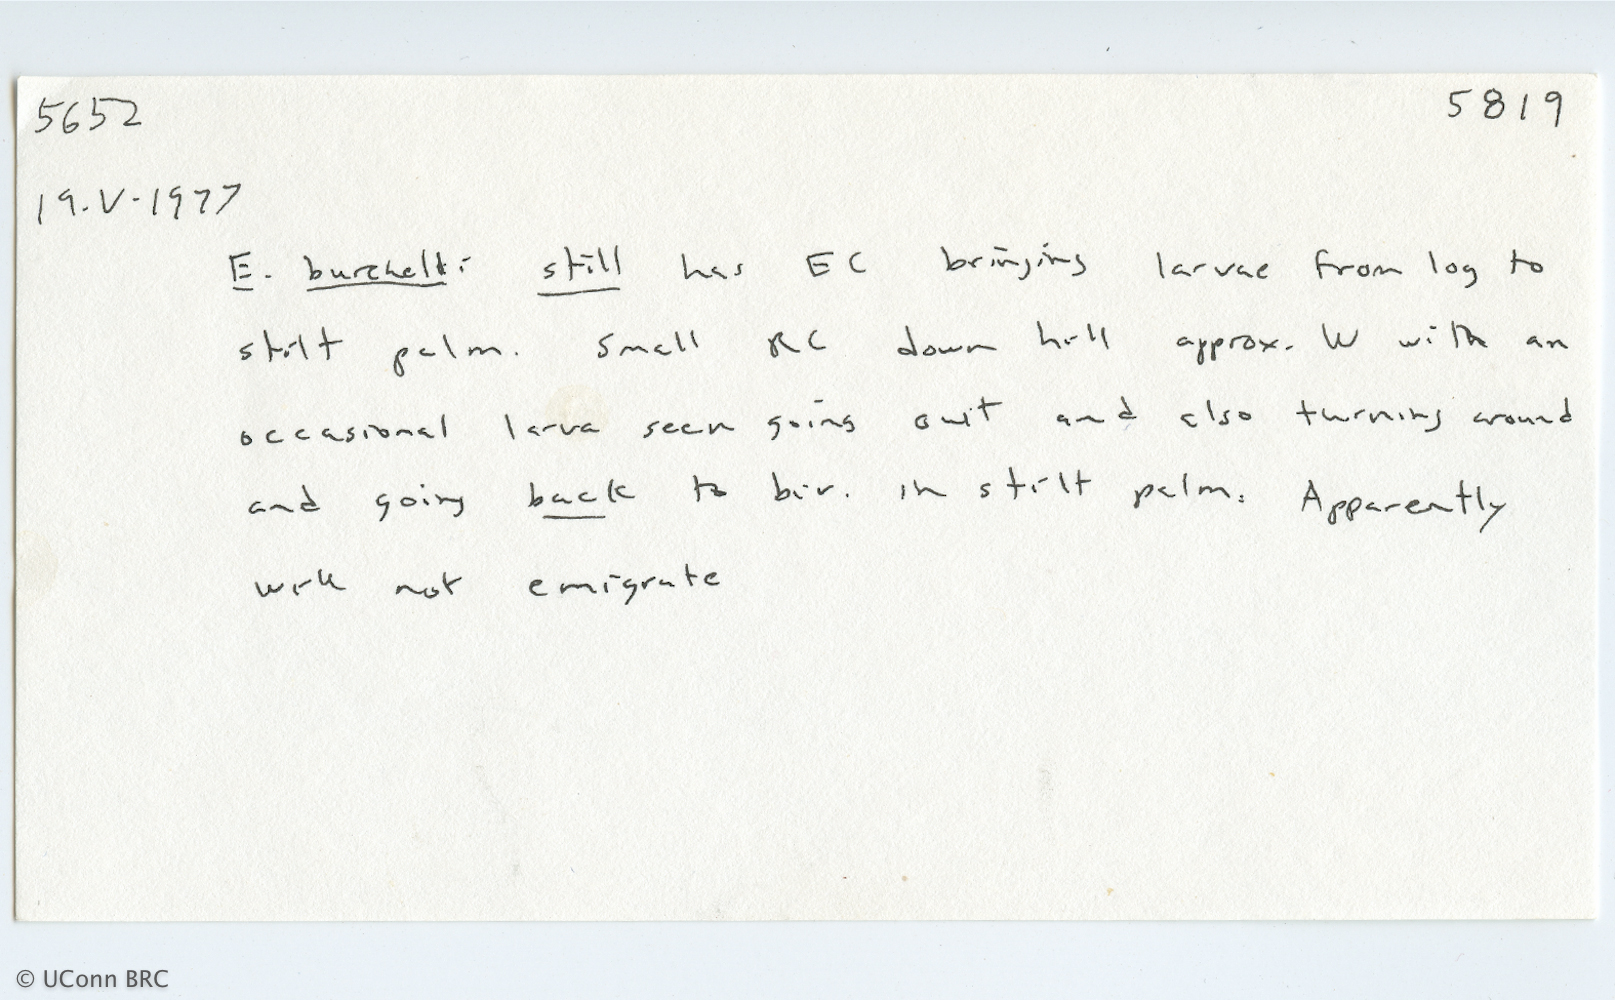 5652 5819
19.V-1977
E. burchelli still has EC bringing larvae from log to
stilt palm. Small RC down hill approx. W with an
occasional larva seen going out and also turning around
and going back to biv. in stilt palm. Apparently
will not emigrate
© UConn BRC